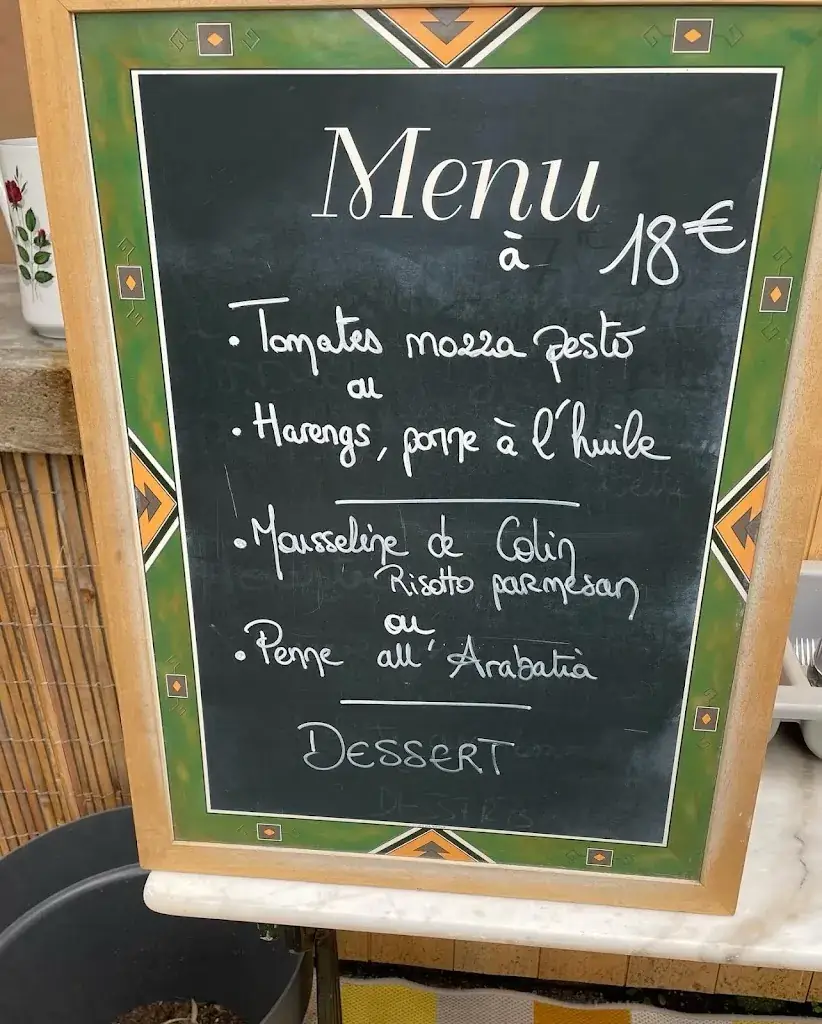 Menu
à 18€
• Tomates mozza pesto
ou
• Harengs, pomme à l'huile
• Mousseline de Colin
Risotto parmesan
ou
• Penne all' Arabatià
DESSERT